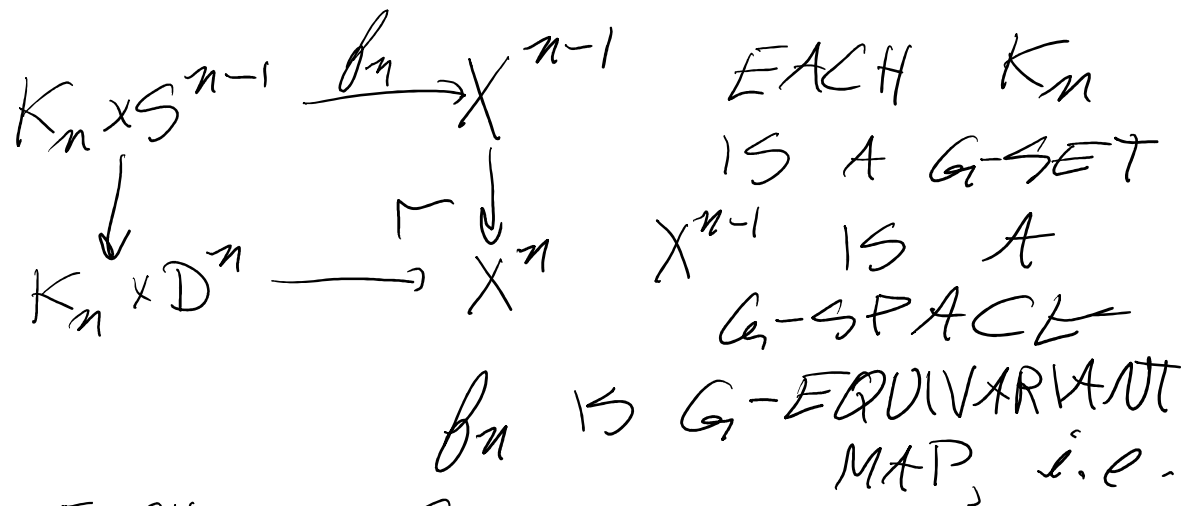 K_n × S^{n-1} f_n X^{n-1}
K_n × D^n X^n
EACH K_n
IS A G-SET
X^{n-1} IS A
G-SPACE
f_n IS G-EQUIVARIANT
MAP, i.e.